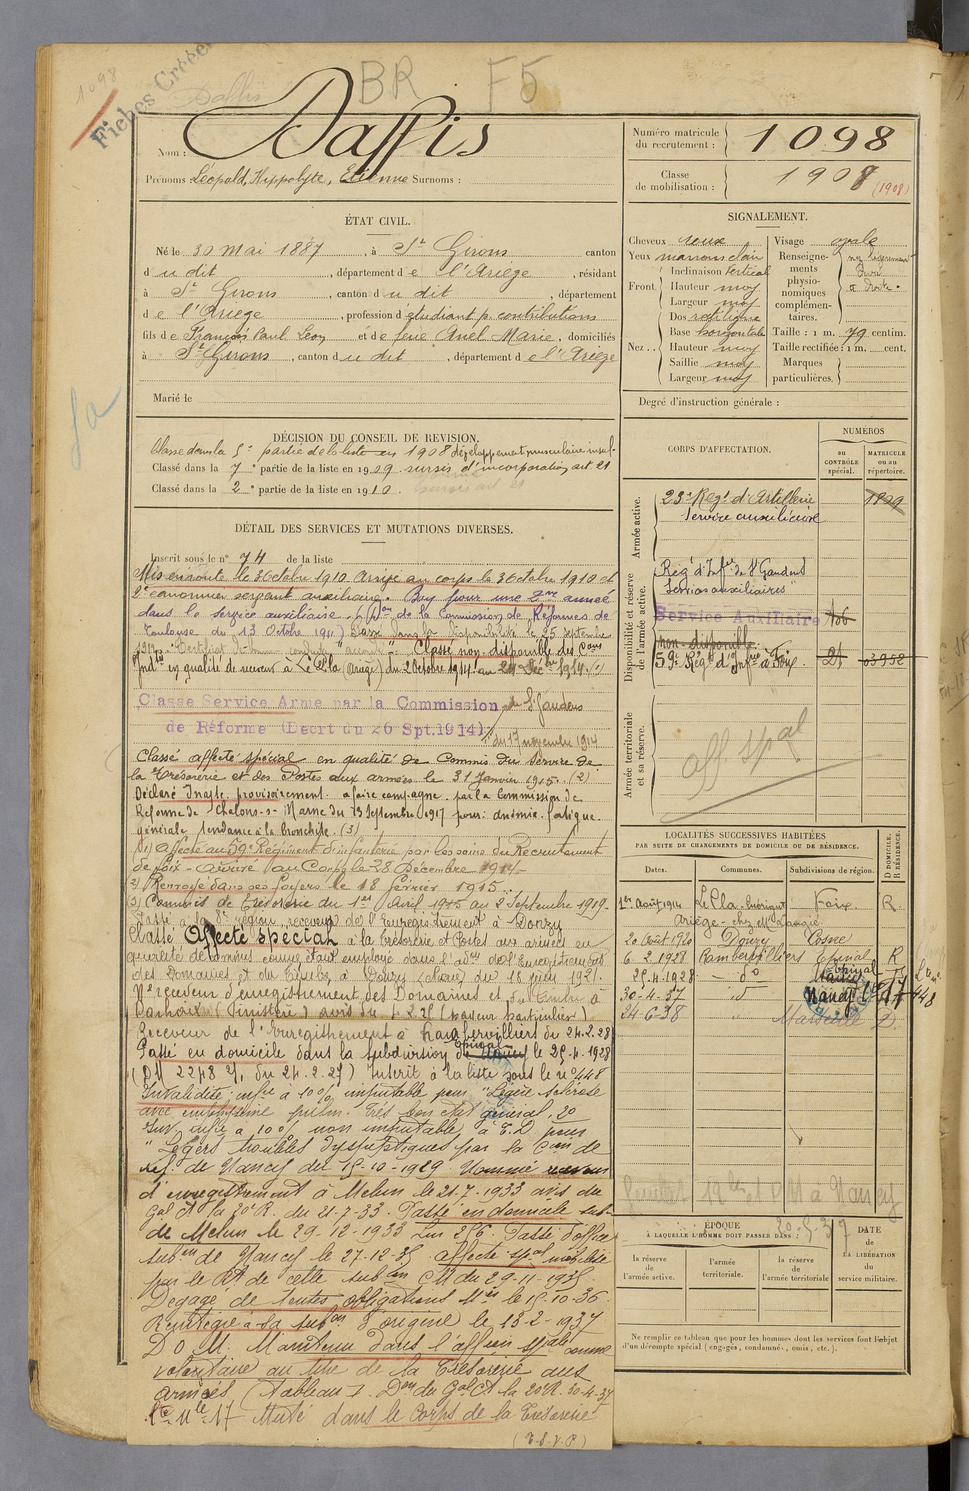 1098
Fiches Créées
Daffis
BR F5
Nom : Daffis
Prénoms : Léopold, Hippolyte, Etienne Surnoms :
Numéro matricule du recrutement : 1098
Classe de mobilisation : 1908 (1908)
ÉTAT CIVIL.
Né le 30 mai 1887, à St Girons canton
du dit, département de l'Ariège, résidant
à St Girons, canton du dit, département
de l'Ariège, profession d'étudiant p. contributions
fils de François Paul Léon et de feue Anel Marie, domiciliés
à St Girons, canton du dit, département de l'Ariège
Marié le
SIGNALEMENT.
Cheveux roux
Yeux marrons clair
Front. Inclinaison vertical
Hauteur moy
Largeur moy
Nez. Dos rectiligne
Base horizontale
Hauteur moy
Saillie moy
Largeur moy
Visage ovale
Renseignements physionomiques complémentaires. nez légèrement dévié à droite.
Taille : 1 m. 79 centim.
Taille rectifiée : 1 m. cent.
Marques particulières.
Degré d'instruction générale :
DÉCISION DU CONSEIL DE REVISION.
Classé dans la 5e partie de la liste en 1908 développement musculaire insuf.
Classé dans la 7e partie de la liste en 1909. sursis d'incorporation art 21
Classé dans la 2e partie de la liste en 1910.
DÉTAIL DES SERVICES ET MUTATIONS DIVERSES.
Inscrit sous le n° 74 de la liste
Mis en route le 3 Octobre 1910. Arrivé au corps le 3 Octobre 1910 et
2e canonnier servant auxiliaire. Bon pour une 2me année
dans le service auxiliaire (Don de la Commission de Réformes de
Toulouse du 13 Octobre 1911) Passé dans la disponibilité le 25 septembre
1912. Certificat de bonne conduite accordé. Classé non disponible des Cons
Indtes en qualité de receveur à Le Pla (Ariège) du 2 Octobre 1914 au 24 Décbre 1914. (1)
Classé Service Armé par la Commission de St Gaudens
de Réforme (Décrt du 26 Spt. 1914) du 17 novembre 1914
Classé affecté spécial en qualité de Commis du Service de
la Trésorerie et des Postes aux armées le 31 Janvier 1915. (2)
Déclaré Inapte provisoirement à faire campagne par la Commission de
Réforme de Chalons-s-Marne du 13 Septembre 1917 pour : anémie, fatigue
générale, tendance à la bronchite. (3)
(1) Affecté au 59e Régiment d'infanterie par les soins du Recrutement
de Foix - arrivé au Corps le 28 Décembre 1914.
(2) Renvoyé dans ses foyers le 18 février 1915.
(3) Commis de Trésorerie du 1er Avril 1915 au 2 Septembre 1919.
Passé à la 8e région, receveur de l'Enregistrement à Donzy
Classé Affecté spécial à la Trésorerie et Postes aux armées en
qualité de commis comme étant employé dans l'adm de l'Enregistrement
des Domaines et du Timbre à Donzy (Nièvre) du 15 Juin 1921.
Né receveur d'enregistrement des Domaines et du Timbre à
Bannalec (Finistère) avis du 4.2.25 (payeur particulier)
Receveur de l'Enregistrement à Rambervillers du 24.2.28
Passé en domicile dans la subdivision de Nancy Epinal le 25.4.1928
(DM 2278 2/1 du 24.2.27) Inscrit à la liste sous le n° 448
Invalidité : infre à 10% imputable pour "Légère sclérose
avec emphysème pulm. Très bon état général, 2°
Inv. infre à 10% non imputable à E.D. pour
"Légers troubles dyspeptiques par la Con de
réf. de Nancy du 15-10-1929 Nommé receveur
d'enregistrement à Melun le 21.7.1933 avis du
Gal Ct la 20e R. du 21.7.33. Passé en domicile sub.
de Melun le 29-12-1933 Lin 256. Passé d'office
subon de Nancy le 27-12-35 affecté spal mobilisé
par le Rt de cette subon CM du 29-11-1935
Dégagé de toutes obligations Mres le 15-10-36.
Réintégré à la subon d'origine le 13-2-1937
DOM. Maintenu dans l'affon spale comme
volontaire au titre de la Trésorerie aux
armées (Tableau 1. Don du Gal Ct la 20e R. 30-4-37
Le 11e 17 Muté dans le Corps de la Trésorerie
(T.S.V.P)
CORPS D'AFFECTATION.
NUMÉROS
au CONTRÔLE spécial.
MATRICULE ou au répertoire.
Armée active.
23e Régt d'Artillerie 1829
Service auxiliaire
Disponibilité et réserve de l'armée active.
Reg d'Infrie de St Gaudens
"Services auxiliaires"
Service Auxiliaire 186
non-disponible
59e Régt d'Infrie à Foix 21 03952
Armée territoriale et sa réserve.
aff spal
LOCALITÉS SUCCESSIVES HABITÉES
PAR SUITE DE CHANGEMENTS DE DOMICILE OU DE RÉSIDENCE.
Dates. Communes. Subdivisions de région. D DOMICILE. R RÉSIDENCE.
1er Août 1914 Le Pla Foix R.
Ariège - chez Mr
20 Août 1920 Donzy Cosne
6-2-1928 Rambervillers Epinal R
25-4-1928 do Nancy Epinal D
30-4-37 d° Nancy 448
24-6-38 " Marseille D
Nancy
20-5-37
ÉPOQUE
À LAQUELLE L'HOMME DOIT PASSER DANS :
la réserve de l'armée active.
l'armée territoriale.
la réserve de l'armée territoriale
DATE DE LA LIBÉRATION du service militaire.
Ne remplir ce tableau que pour les hommes dont les services font l'objet
d'un décompte spécial (engagés, condamnés, omis, etc.).